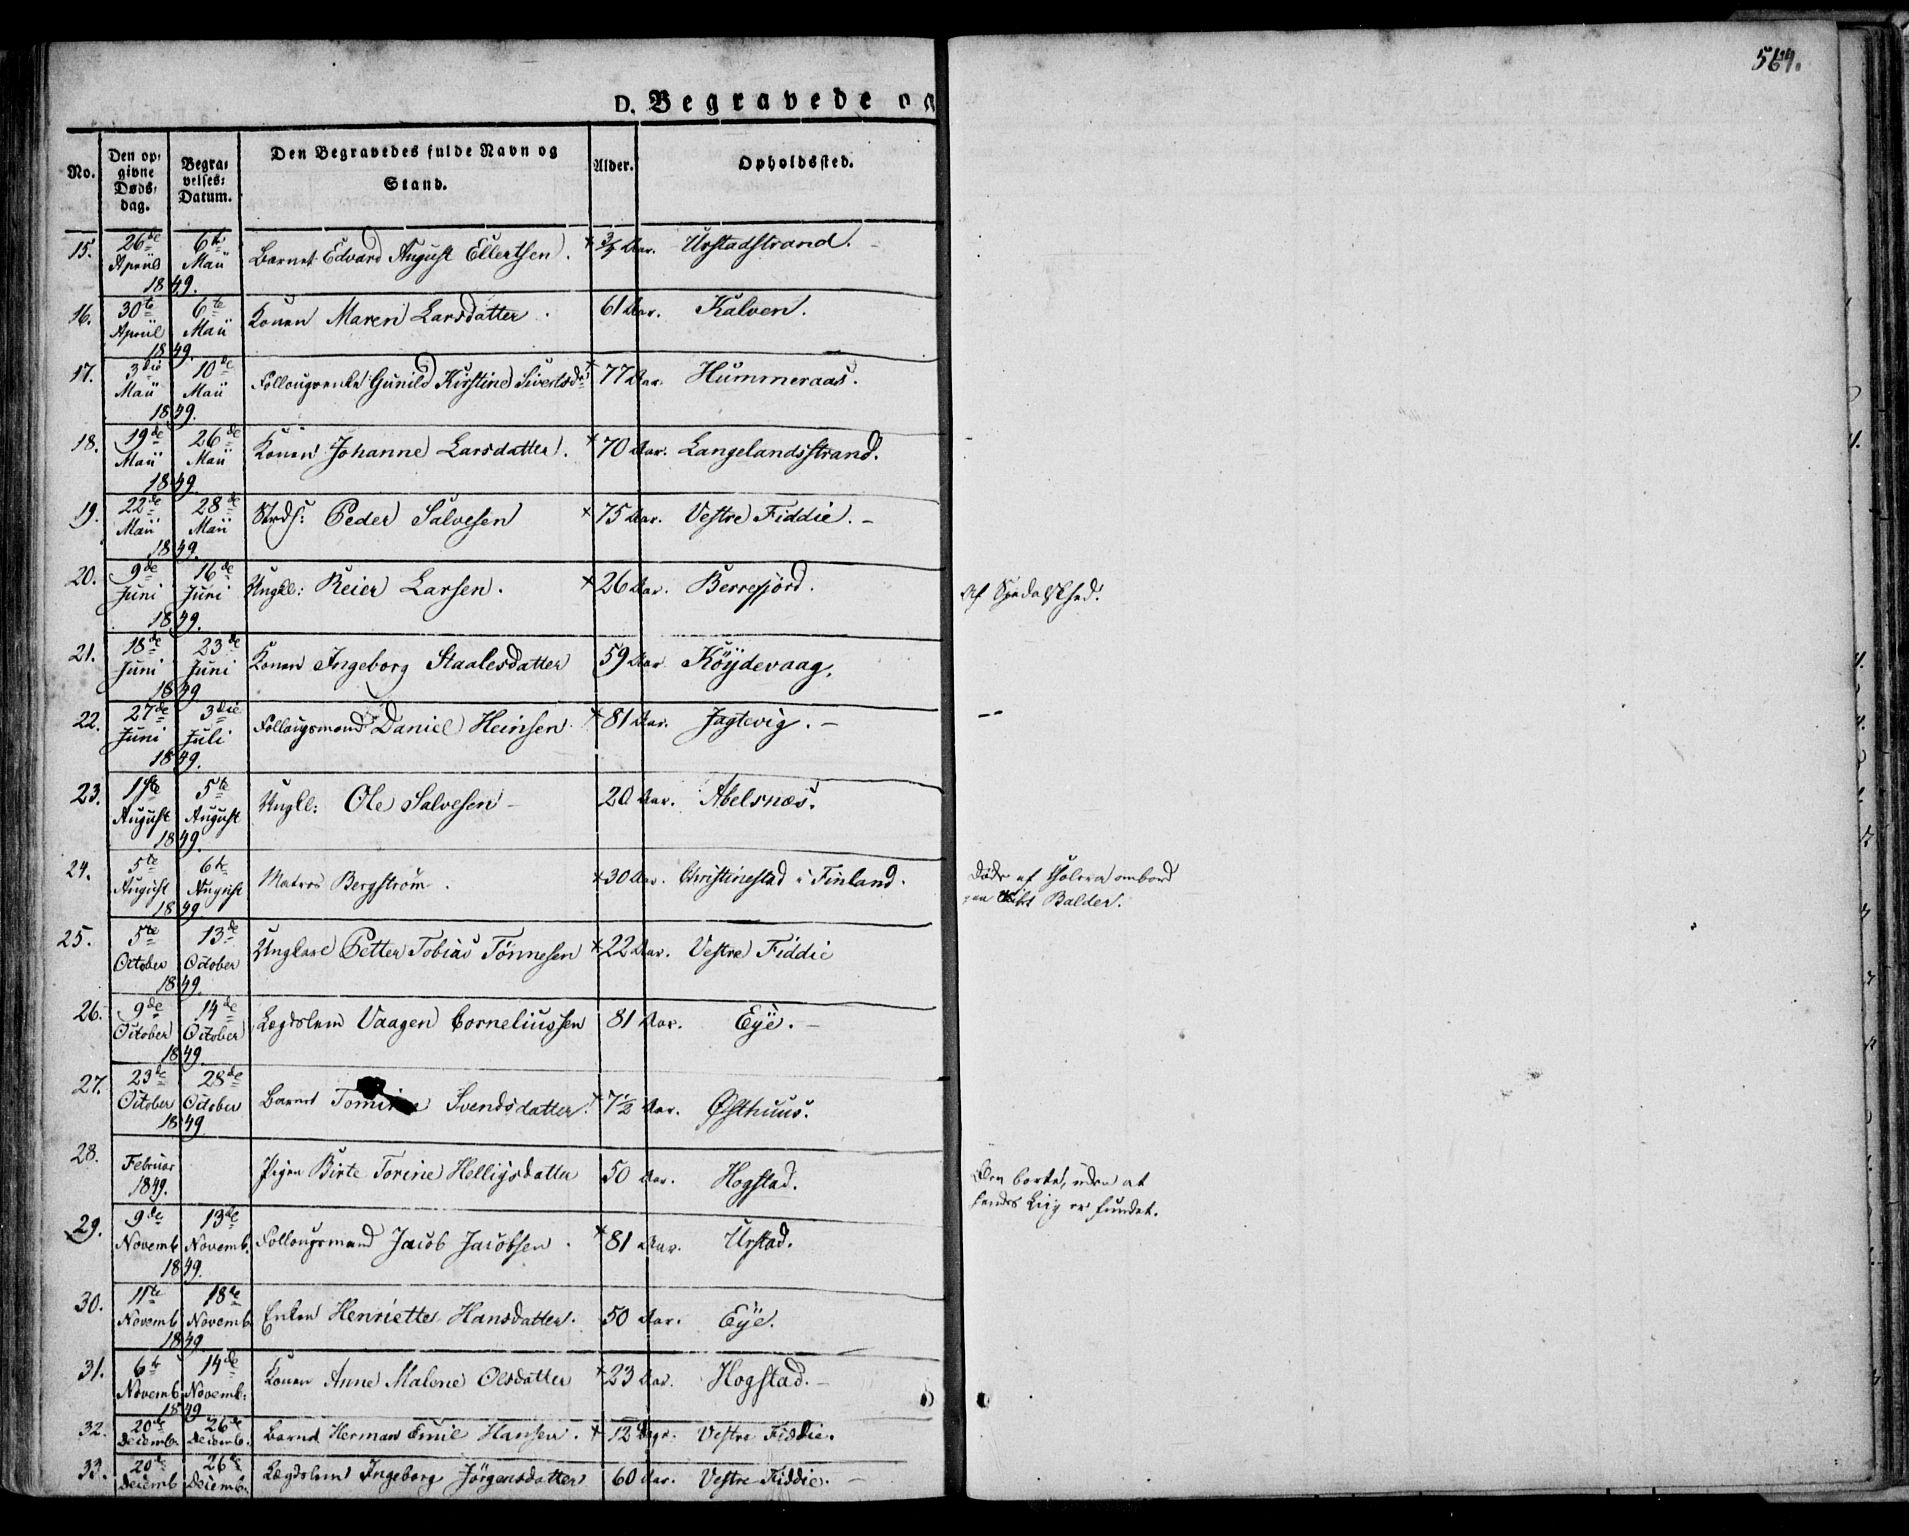 564.
D. Begravede og
No.
Den op-
givne
Døds-
dag.
Begra-
velses-
Datum.
Den Begravedes fulde Navn og
Stand.
Alder.
Opholdssted.
15. 26de Apriil 6te Maii 1849. Barnet Edvard August Ellertsen. × 3/4 Aar. Urstadstrand. -
16. 30te Apriil 6te Maii 1849. Konen Maren Larsdatter. 61 Aar. Kalven.
17. 3die Maii 10de Maii 1849. Follougsenke Gunild Kirstine Sivertsd: × 77 Aar. Hummeraas.
18. 19de Maii 26de Maii 1849. Konen Johanne Larsdatter. × 70 Aar. Langelandsstrand.
19. 22de Maii 28de Maii 1849. Peder Salvesen × 75 Aar. Vestre Fiddie. -
20. 9de Juni 16de Juni 1849. Ungkl: Reier Larsen. × 26 Aar. Berrefjord. Af
21. 18de Juni 23de Juni 1849 Konen Ingeborg Staalesdatter 59 Aar. Köÿdevaag.
22. 27de Juni 3die Juli 1849. Follougsmand Daniel Heinsen. × 81 Aar. Jagtevig. -
23. 1ste August 5te August 1849. Ungkl: Ole Salvesen - 20 Aar. Abelsnæs.
24. 5te August 6te August 1849 Matros Bergström. × 30 Aar. Christinestad i Finland. Døde af Cholera ombord
paa Balder.
25. 5te October 13de October 1849. Ungkarl Petter Tobias Tönnesen × 22 Aar. Vestre Fiddie
26. 9de October 14de October 1849. Lægdslem Vaagen Corneliussen 81 Aar. Eÿe. -
27. 23de October 28de October 1849 Barnet Tomine Svendsdatter. × 7 1/2 Aar. Østhuus.
28. Februar 1849. Pigen Birte Torine Helligsdatter 50 Aar. Hogstad. borte, uden at
hendes Liig er fundet.
29. 9de Novemb. 13de Novemb. 1849. Follougsmand Jacob Jacobsen. × 81 Aar. Urstad.
30. 11te Novemb. 18de Novemb. 1849 Enken Henriette Hansdatter. 50 Aar. Eÿe.
31. 6te Novemb. 14de Novemb: 1849 Konen Anne Malene Olsdatter × 23 Aar. Hogstad. -
32. 20de Decemb. 26de Decemb. Barnet Herman Emil Hansen. × 12 Dage. Vestre Fiddie.
33. 20de Decemb. 26de Decemb. Lægdslem Ingeborg Jörgensdatter 60 Aar. Vestre Fiddie. -